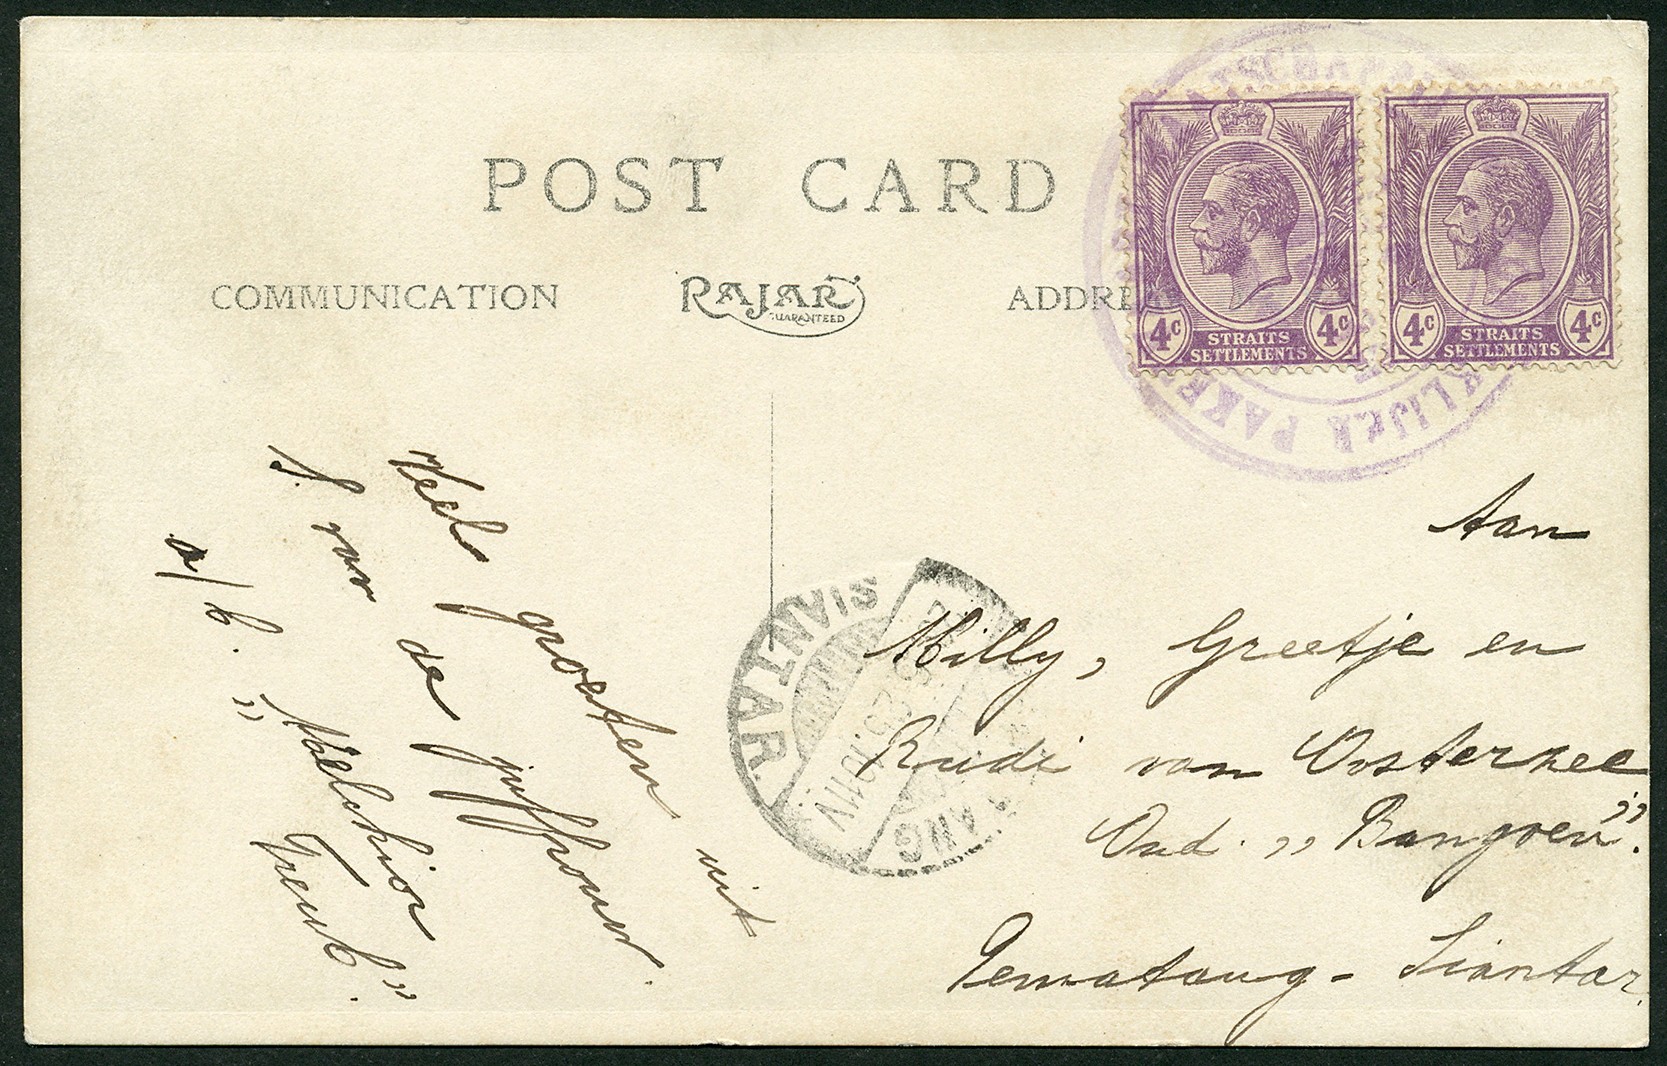 POST CARD
COMMUNICATION
RAJAR
GUARANTEED
ADDRE
4c STRAITS SETTLEMENTS 4c
4c STRAITS SETTLEMENTS 4c
KLIJKE PAKE
SIANTAR
Veel groeten uit
S. van de juffrouw.
a/b. „Melchior
Treub."
Aan
Milly, Greetje en
Rudi van Oosterzee
Ond. „Bangoen".
Pematang - Siantar